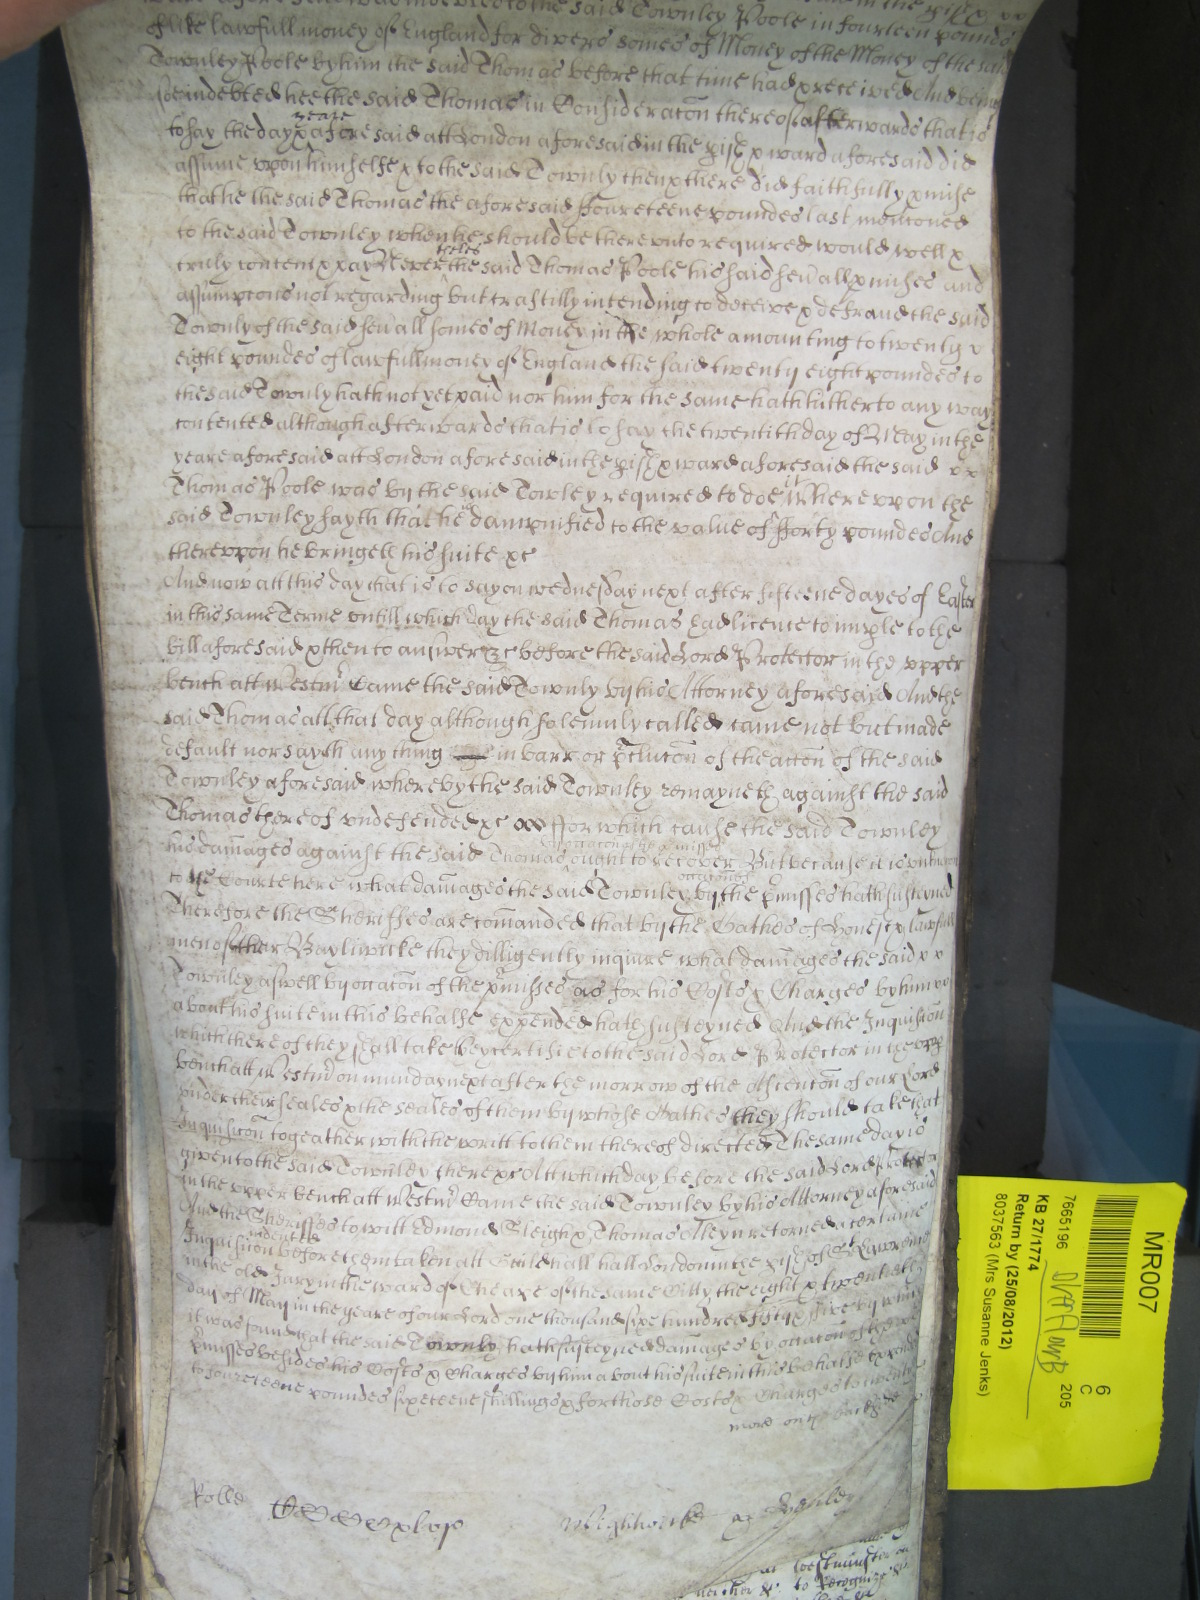 said Townley Poole in fourteen pounds
of like lawfull money of England for divers somes of Money of the Money of the said
Townley Poole by him the said Thomas before that time had & received And being
soe indebted hee the said Thomas in Consideracon thereof afterwards that is
yeare
to say the day & aforesaid att London aforesaid in the pish & ward aforesaid did
assume upon himselfe & to the said Townly then & there did faithfully pmise
that he the said Thomas the aforesaid ffoureteene poundes last menconed
to the said Townley when he should be thereunto required would well &
truly content & pay Never the said Thomas Poole his said seuall pmises and
theles
assumpcons not regarding but craftilly intending to deceive & defraud the said
Townly of the said seuall somes of Money in the whole amounting to twenty
eight poundes of lawfull money of England the said twenty eight poundes to
the said Townly hath not yet paid nor him for the same hath hitherto any way
contented although afterwards that is to say the twentith day of May in the
yeare aforesaid att London aforesaid in the pish & ward aforesaid the said
Thomas Poole was by the said Towley required to doe it Whereupon the
said Townley sayth that he is dampnified to the value of fforty poundes And
thereupon he bringeth his suite &c
And now att this day that is to say on wednesday next after fifteene dayes of Easter
in this same Terme untill which day the said Thomas had licence to imple to the
bill aforesaid & then to answer &c before the said Lord Protector in the upper
bench att Westmr Came the said Townly by his Attorney aforesaid And the
said Thomas all that day although solemnly called came not but made
default nor sayth any thing in barr or pclucon of the accon of the said
Townley aforesaid whereby the said Townley remayneth against the said
Thomas thereof undefended &c ffor which cause the said Townley
his damages against the said Thomas ought to recover But because it is unknown
to the Courte here what damages the said Townley by the pmisses hath susteyned
occacon of
Therefore the Sheriffes are comanded that by the Oathes of honest & lawfull
men of their Bayliwicke they dilligently inquire what damages the said
Townley aswell by occacon of the pmisses as for his Costs & Charges by him
about his suite in this behalfe expended hath susteyned And the Inquisicon
which thereof they shall take they certifie to the said Lord Protector in the upp
bench att Westmr on munday next after the morrow of the Ascencon of our Lord
under their seales & the seales of them by whose Oathes they should take that
Inquisicon togeather with the writt to them thereof directed The same day is
given to the said Townley there &c Att which day before the said Lord Protector
in the upper bench att Westmr Came the said Townley by his Attorney aforesaid
And the Sheriffes to witt Edmond Sleigh & Thomas Alleyn retorned a certaine
indented
Inquisicon before them taken att Guildhall London in the pish of St Lawrence
in the old Jury in the ward of Cheape of the same Citty the eight & twentieth
day of May in the yeare of our Lord one thousand sixe hundred fiftie ffive by which
it was found that the said Townly hath susteyned damages by occacon of the
pmisses besides his Costs & Charges by him about his suite in this behalfe expended
to foureteene poundes sixeteene shillings & for those Costs & Charges to twenty
more on the backside
Rolle
at Westminster
to Recognize
MR007
6
C
205
7665196
KB 27/1774
Return by (25/08/2012)
8037563 (Mrs Susanne Jenks)